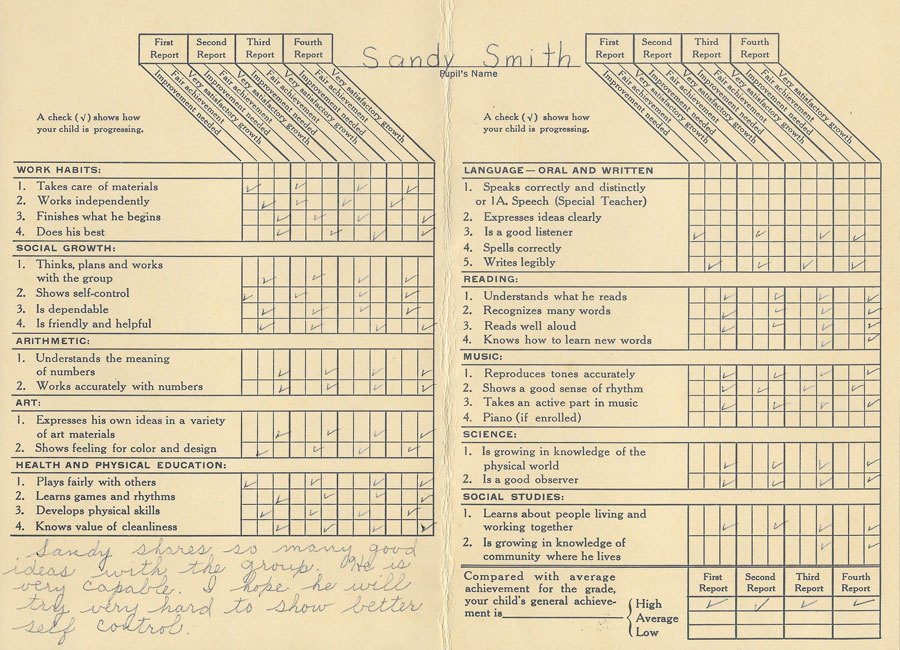 First Report
Second Report
Third Report
Fourth Report
Improvement needed
Fair achievement
Very satisfactory growth
Improvement needed
Fair achievement
Very satisfactory growth
Improvement needed
Fair achievement
Very satisfactory growth
Improvement needed
Fair achievement
Very satisfactory growth
A check (√) shows how
your child is progressing.
Sandy Smith
Pupil's Name
WORK HABITS:
1. Takes care of materials
2. Works independently
3. Finishes what he begins
4. Does his best
SOCIAL GROWTH:
1. Thinks, plans and works
with the group
2. Shows self-control
3. Is dependable
4. Is friendly and helpful
ARITHMETIC:
1. Understands the meaning
of numbers
2. Works accurately with numbers
ART:
1. Expresses his own ideas in a variety
of art materials
2. Shows feeling for color and design
HEALTH AND PHYSICAL EDUCATION:
1. Plays fairly with others
2. Learns games and rhythms
3. Develops physical skills
4. Knows value of cleanliness
Sandy shares so many good
ideas with the group. He is
very capable. I hope he will
try very hard to show better
self control.
First Report
Second Report
Third Report
Fourth Report
Improvement needed
Fair achievement
Very satisfactory growth
Improvement needed
Fair achievement
Very satisfactory growth
Improvement needed
Fair achievement
Very satisfactory growth
Improvement needed
Fair achievement
Very satisfactory growth
A check (√) shows how
your child is progressing.
LANGUAGE — ORAL AND WRITTEN
1. Speaks correctly and distinctly
or 1A. Speech (Special Teacher)
2. Expresses ideas clearly
3. Is a good listener
4. Spells correctly
5. Writes legibly
READING:
1. Understands what he reads
2. Recognizes many words
3. Reads well aloud
4. Knows how to learn new words
MUSIC:
1. Reproduces tones accurately
2. Shows a good sense of rhythm
3. Takes an active part in music
4. Piano (if enrolled)
SCIENCE:
1. Is growing in knowledge of the
physical world
2. Is a good observer
SOCIAL STUDIES:
1. Learns about people living and
working together
2. Is growing in knowledge of
community where he lives
Compared with average
achievement for the grade,
your child's general achieve-
ment is
High
Average
Low
First Report
Second Report
Third Report
Fourth Report